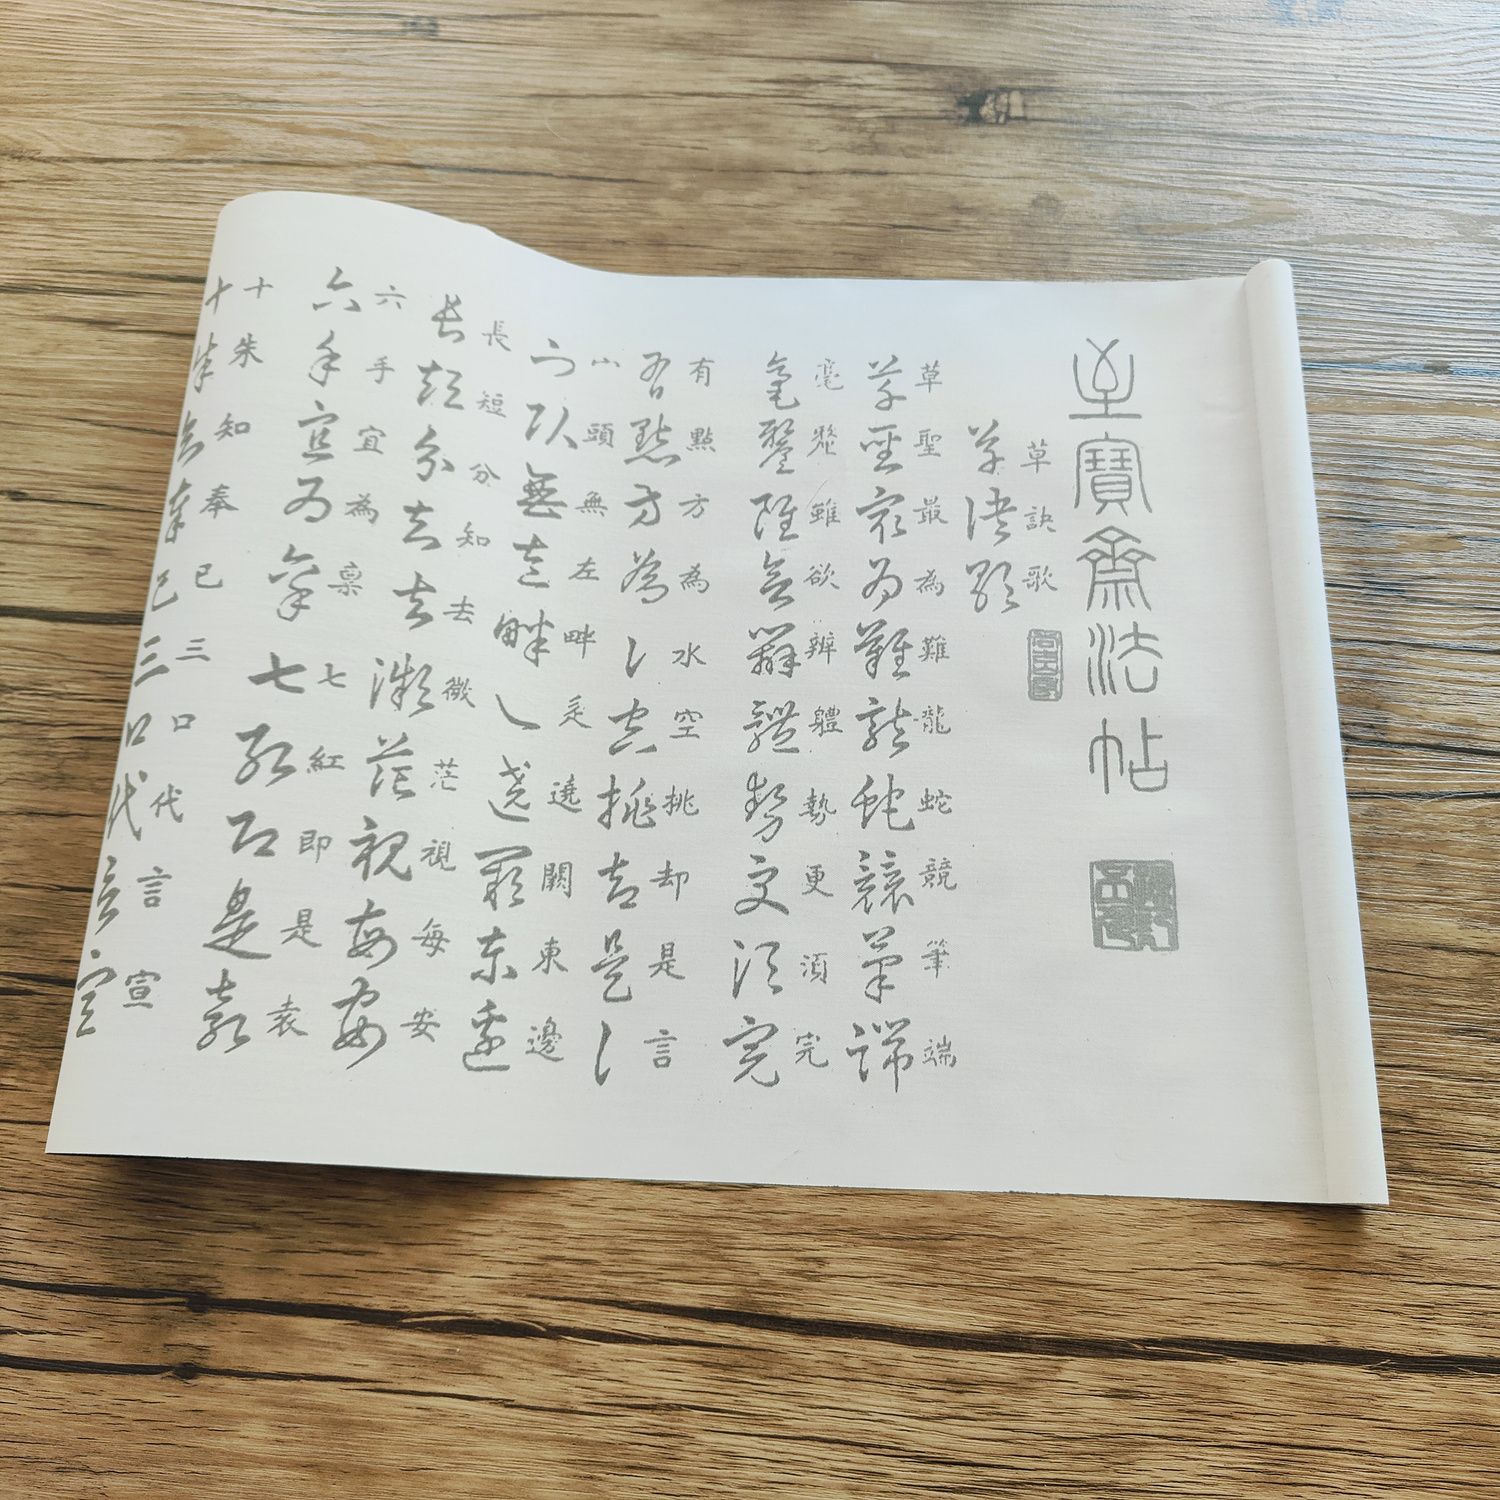 至寶齋法帖
草訣歌
草訣歌
草聖最為難龍蛇競筆端
草聖最為難龍蛇競筆端
毫釐雖欲辨體勢更須完
毫釐雖欲辨體勢更須完
有點方為水空挑却是言
有點方為水空挑却是言
山頭無左畔辵遶闕東邊
山頭無左畔辵遶闕東邊
長短分知去微茫視每安
長短分知去微茫視每安
六手宜為稟七紅即是袁
六手宜為稟七紅即是袁
十朱知奉已三口代言宣
十朱知奉已三口代言宣